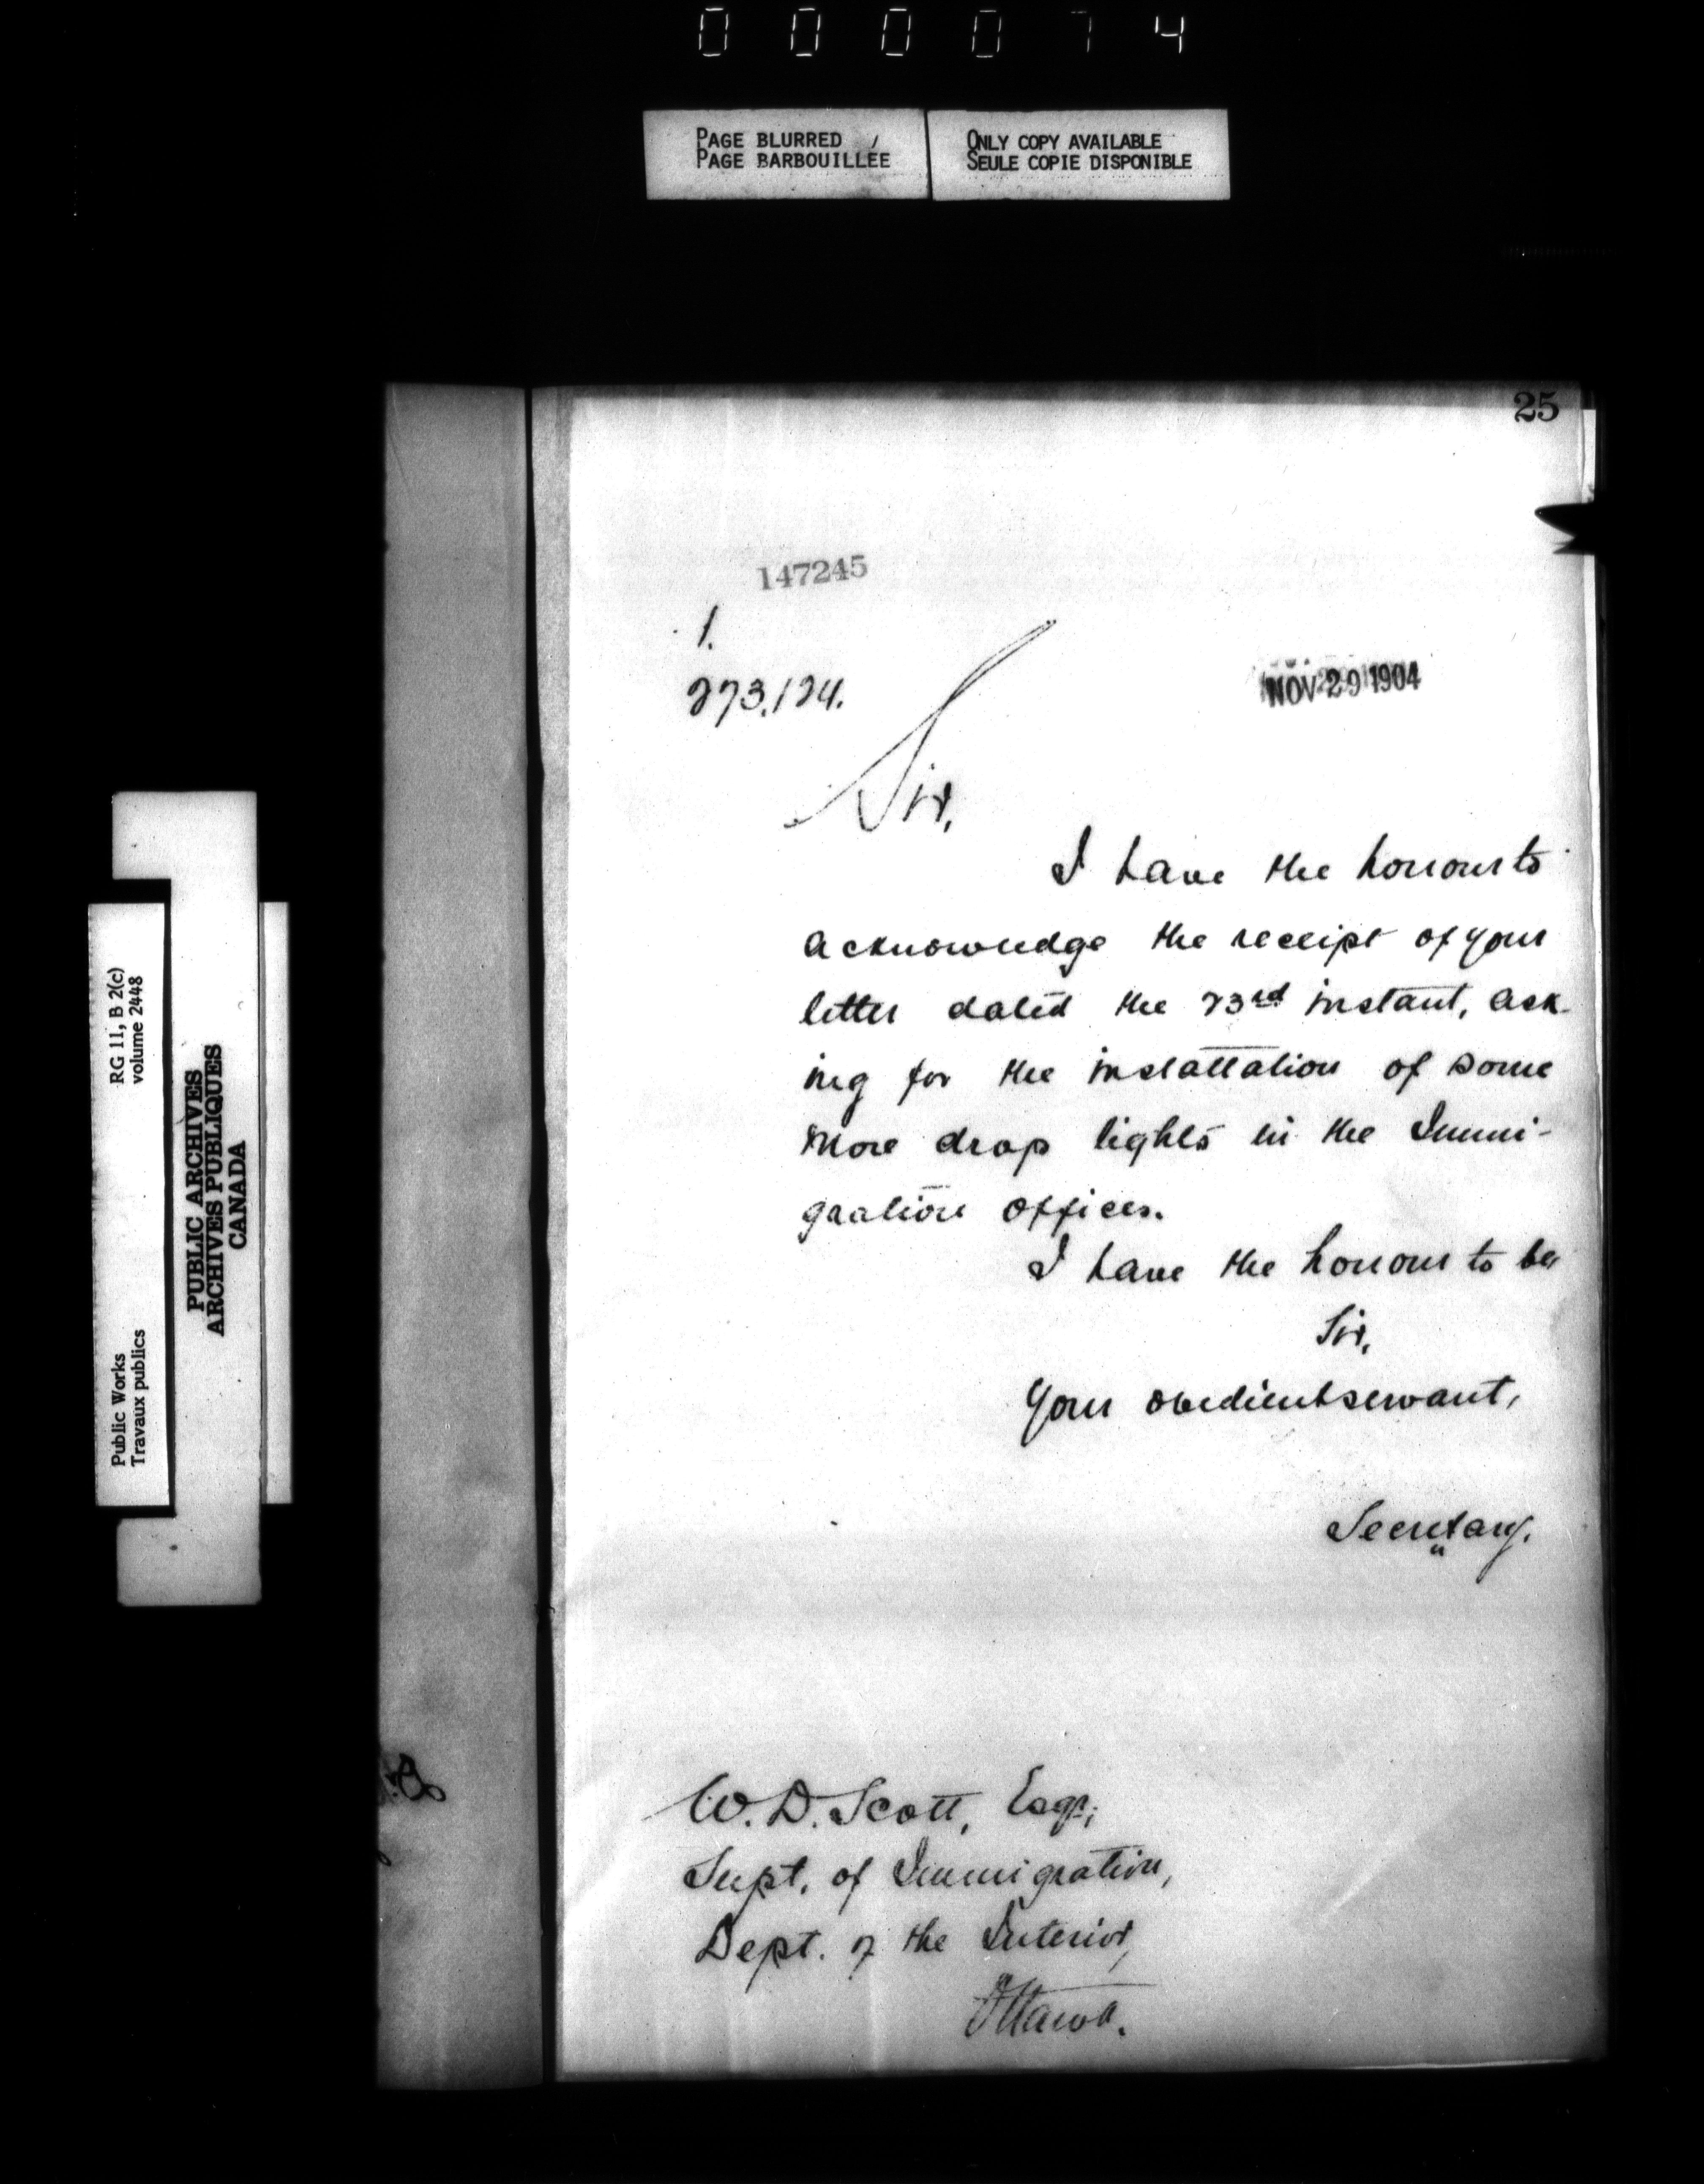 0 0 0 0 7 4
PAGE BLURRED
PAGE BARBOUILLÉE
ONLY COPY AVAILABLE
SEULE COPIE DISPONIBLE
25
147245
1.
273.124.
NOV 29 1904
Sir,
I have the honour to
acknowledge the receipt of your
letter dated the 23rd instant, ask-
ing for the installation of some
more drop lights in the Immi-
gration Offices.
I have the honour to be,
Sir,
Your obedient servant,
Secretary.
W. D. Scott, Esqr.,
Supt. of Immigration,
Dept. of the Interior,
Ottawa.
RG 11, B 2(c)
volume 2448
Public Works
Travaux publics
PUBLIC ARCHIVES
ARCHIVES PUBLIQUES
CANADA